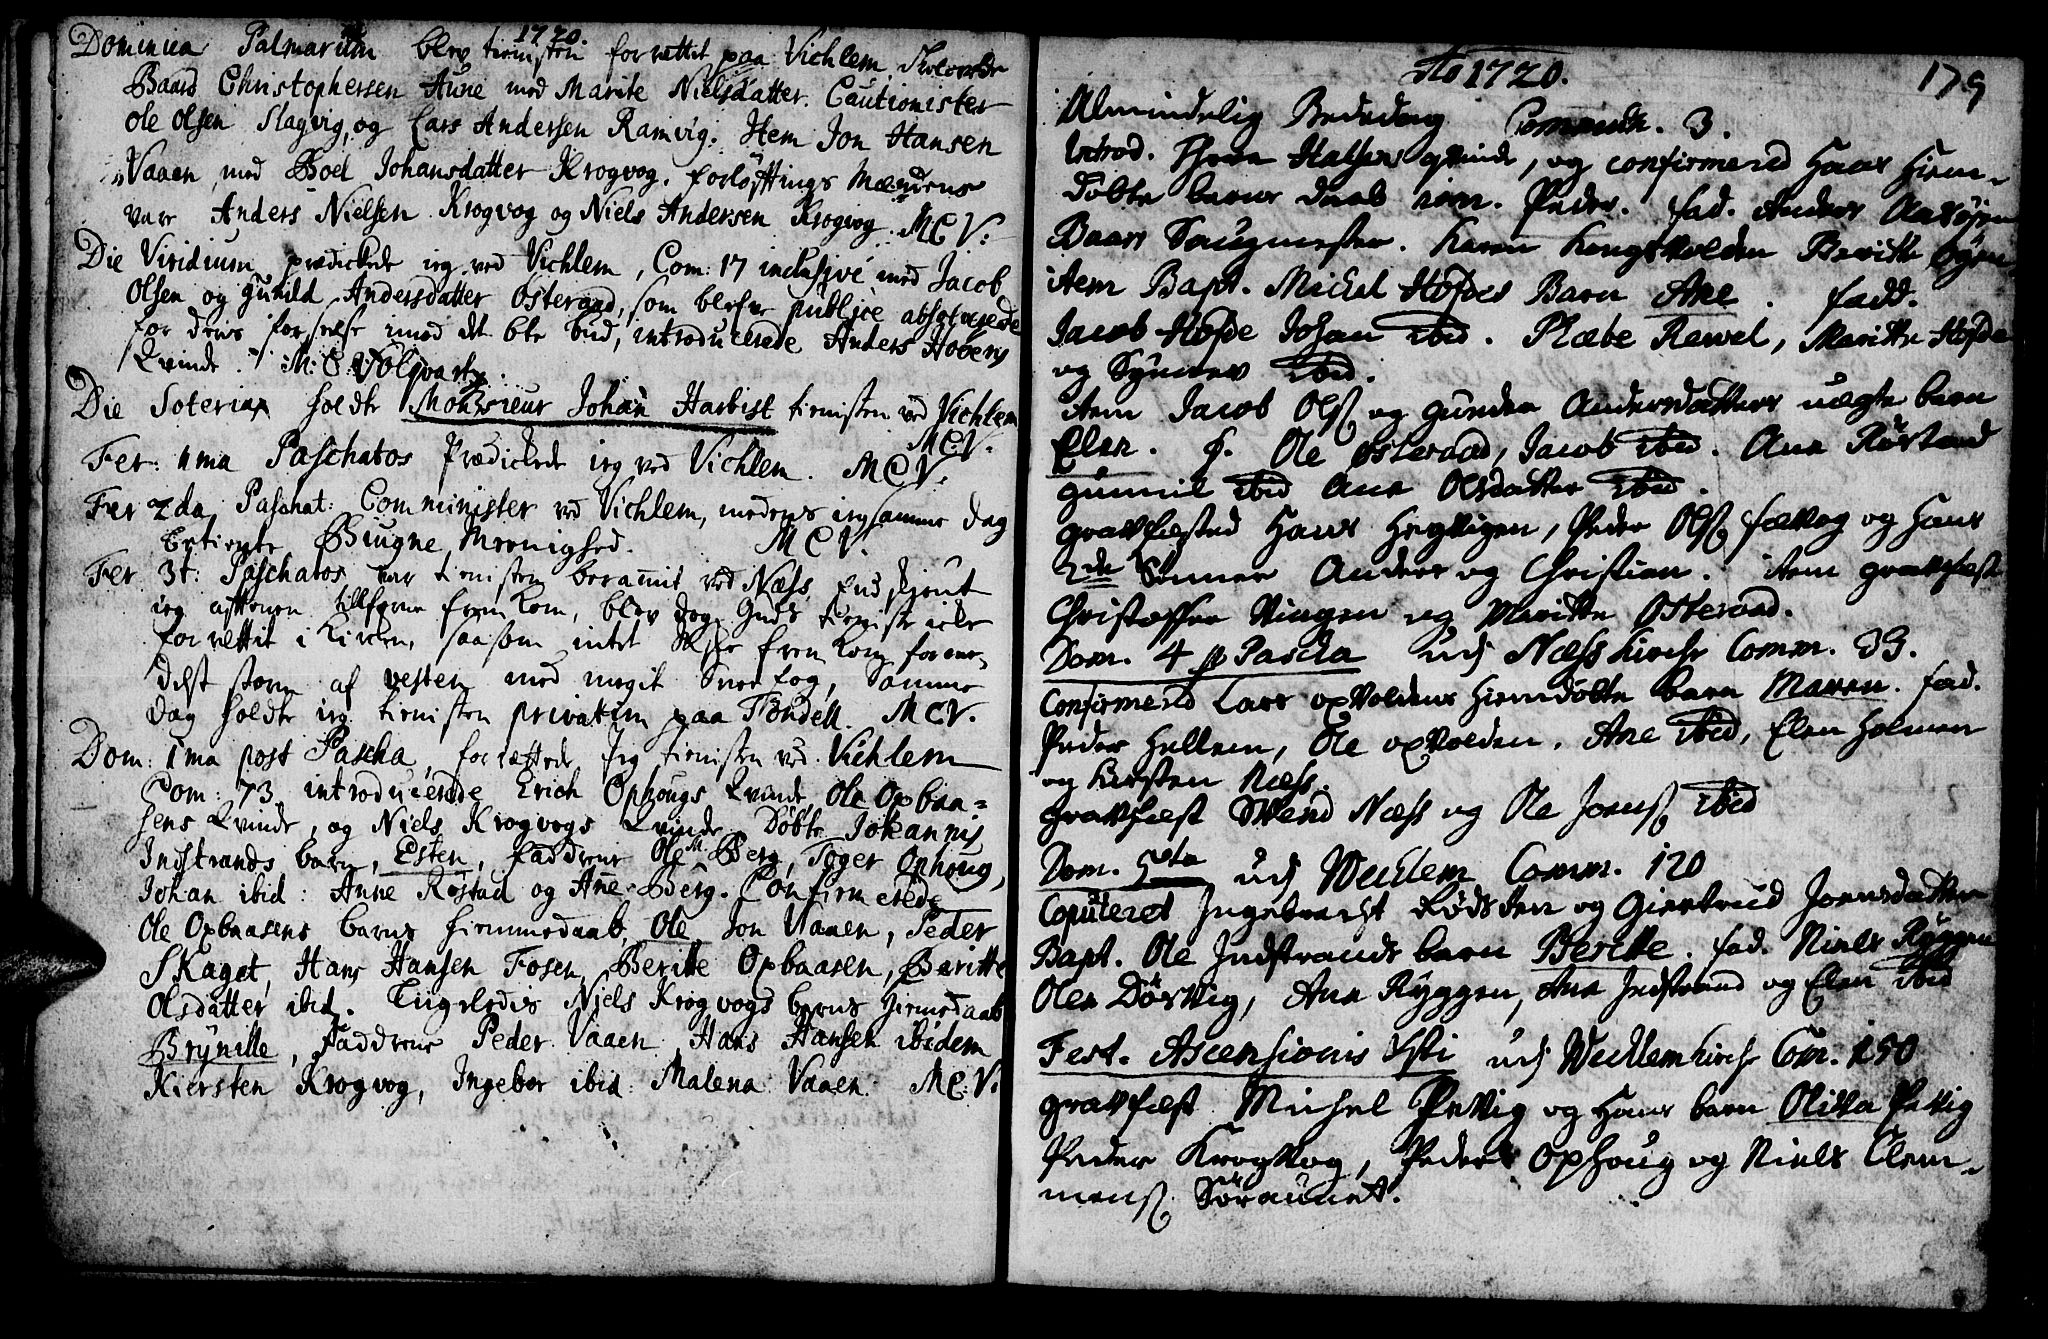 1720.
Dominica Palmarum blev tienisten forrettit paa Vichlem. Trolovede
Baard Christophersen Aune med Marite Nielsdatter. Cautionister
Ole Olsen Slagvig, og Lars Andersen Ramvig. Item Jon Hansen
Vaaen, med Boel Johansdatter Krogvog. forløftings Mændene
var Anders Nielsen Krogvog og Niels Andersen Krogvog. MCV:
Die Viridium prædickede ieg ved Vichlem, Com: 17 inclusive med Jacob
Olsen og Gunild Andersdatter Osteraad, som blefve publice absolverede
for deris forseelse imod det 6te bud, introducerede Anders Hovens
Kvinde. M: C: Volqvartz.
Die Soteriæ holdte Monsieur Johan Harbist tienisten ved Vichlem
MCV.
Fer: 1ma Paschatos Prædickede ieg ved Vichlem. MCV.
Fer 2da Paschat: Comminister ved Vichlem, medens ieg samme dag
betiente Biugne Menighed. MCV.
Fer 3t: Paschatos var tienisten berammit ved Næss, Endskjønt
ieg aftenen tillforne frem kom, blev dog Guds tieniste icke
forrettit i Kircken, saasom intet Folck frem kom forme-
delst storm af vesten med megit Snee fog, Samme
dag holdte ieg tienisten privatim paa Tøndell. MCV.
Dom: 1ma post Pascha, forrættede Jeg tienisten ved Vichlem
Com: 73 introducerede Erich Ophougs Kvinde, Ole Opbaa=
sens Kvinde, og Niels Krogvogs Kvinde. Døbte Johannis
Indstrands barn, Esten, faddrene Ole Berg, Toger Ophoug,
Johan ibid: Anne Røstad og Ane Berg. Confirmerede
Ole Opbaasens barns hiemmedaab, Ole Jon Vaaen, Peder
Skaget, Hans Hansen Fosen, Beritte Opbaasen, Beritte
Olsdatter ibid. Lingeledis Niels Krogvogs barns Hiemedaab
Brynille, Faddrene Peder Vaaen, Hans Hansen ibidem
Kiersten Krogvog, Ingebor ibid: Malena Vaaen. MC:V.
Ao 1720.
179
Almindelig Bededag Comunic. 3.
introd. Halsens qvinde, og confirmered Hans Hiem-
døbte barns daab nom. Peder. fad. Anders
Baars Saugmester. Karen Kongsvolden Beritte
item Bapt. Michel Hofdes Barn Ane. fadd.
Jacob Hofde Johan ibid. Phæbe Rewel, Maritte Hofde
og Synnev ibid.
item Jacob Olss og Gunder Andersdatters uægte barn
Elen. f. Ole Osteraad, Jacob ibid. Ana Røstand
Gunnil ibid Ana Olsdatter ibid.
gravfæsted Hans Hegvigen, Peder Olss og Hans
2de Sønner Anders og Christian. item gravfæst
Christoffer Vingen og Maritte Osteraad.
Dom. 4 p Pascha udj Næss kirche Comm. 39.
Confirmered Lars opvoldens hiemdøbte barn Maren. fad.
Peder Hellem, Ole opvolden. Ane ibid, Elen Holmen
og Kirsten Næss.
gravfæst Svend Næss og Ole Jonss ibid
Dom. 5ta udj Wechlem Comm. 120
Coputeret Ingebrecht Rødsten og Giertrud Joensdatter
Bapt. Ole Indstrands barn Beritte. fad. Niels Ryggen
Olea Dørvig, Ana Ryggen, Ana Indstrand og Elen ibid
Fest. Ascensionis Xsti udj Wechlem kirche Com. 150
gravfæst Michel Pevig og Hans barn Oliva Pevig
Peder Krogvog, Peder Ophoug og Niels Clem-
menss Søraunet.